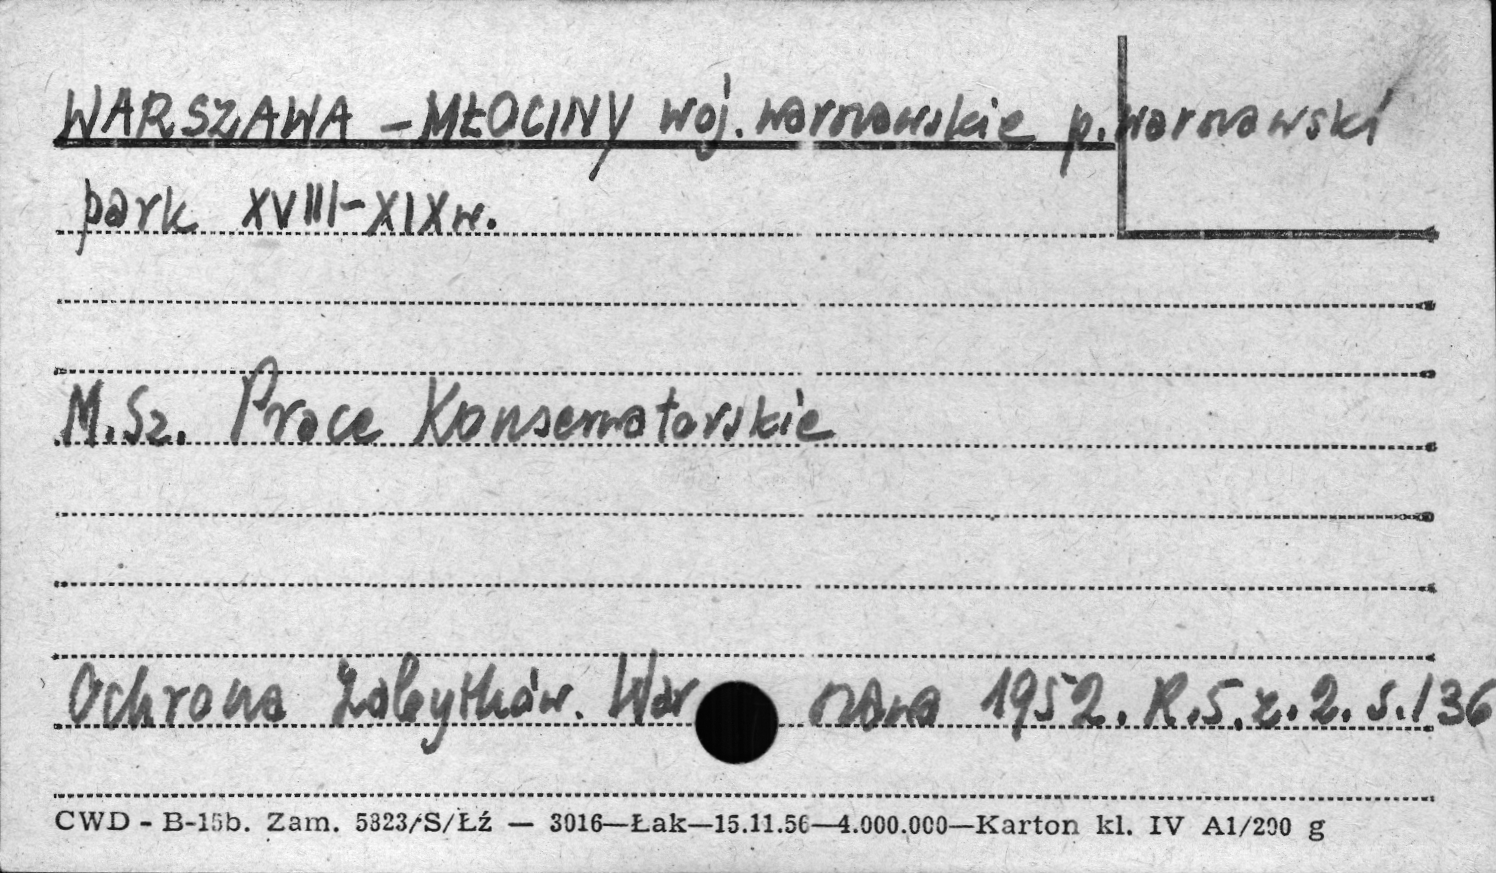 WARSZAWA - MŁOCINY woj. warszawskie p. warszawski
park XVIII-XIX w.
M.Sz. Prace Konserwatorskie
Ochrona Zabytków. Warszawa 1952. R.5. z. 2. s. 136
CWD - B-15b. Zam. 5823/S/Łź — 3016—Łak—15.11.56—4.000.000—Karton kl. IV A1/200 g